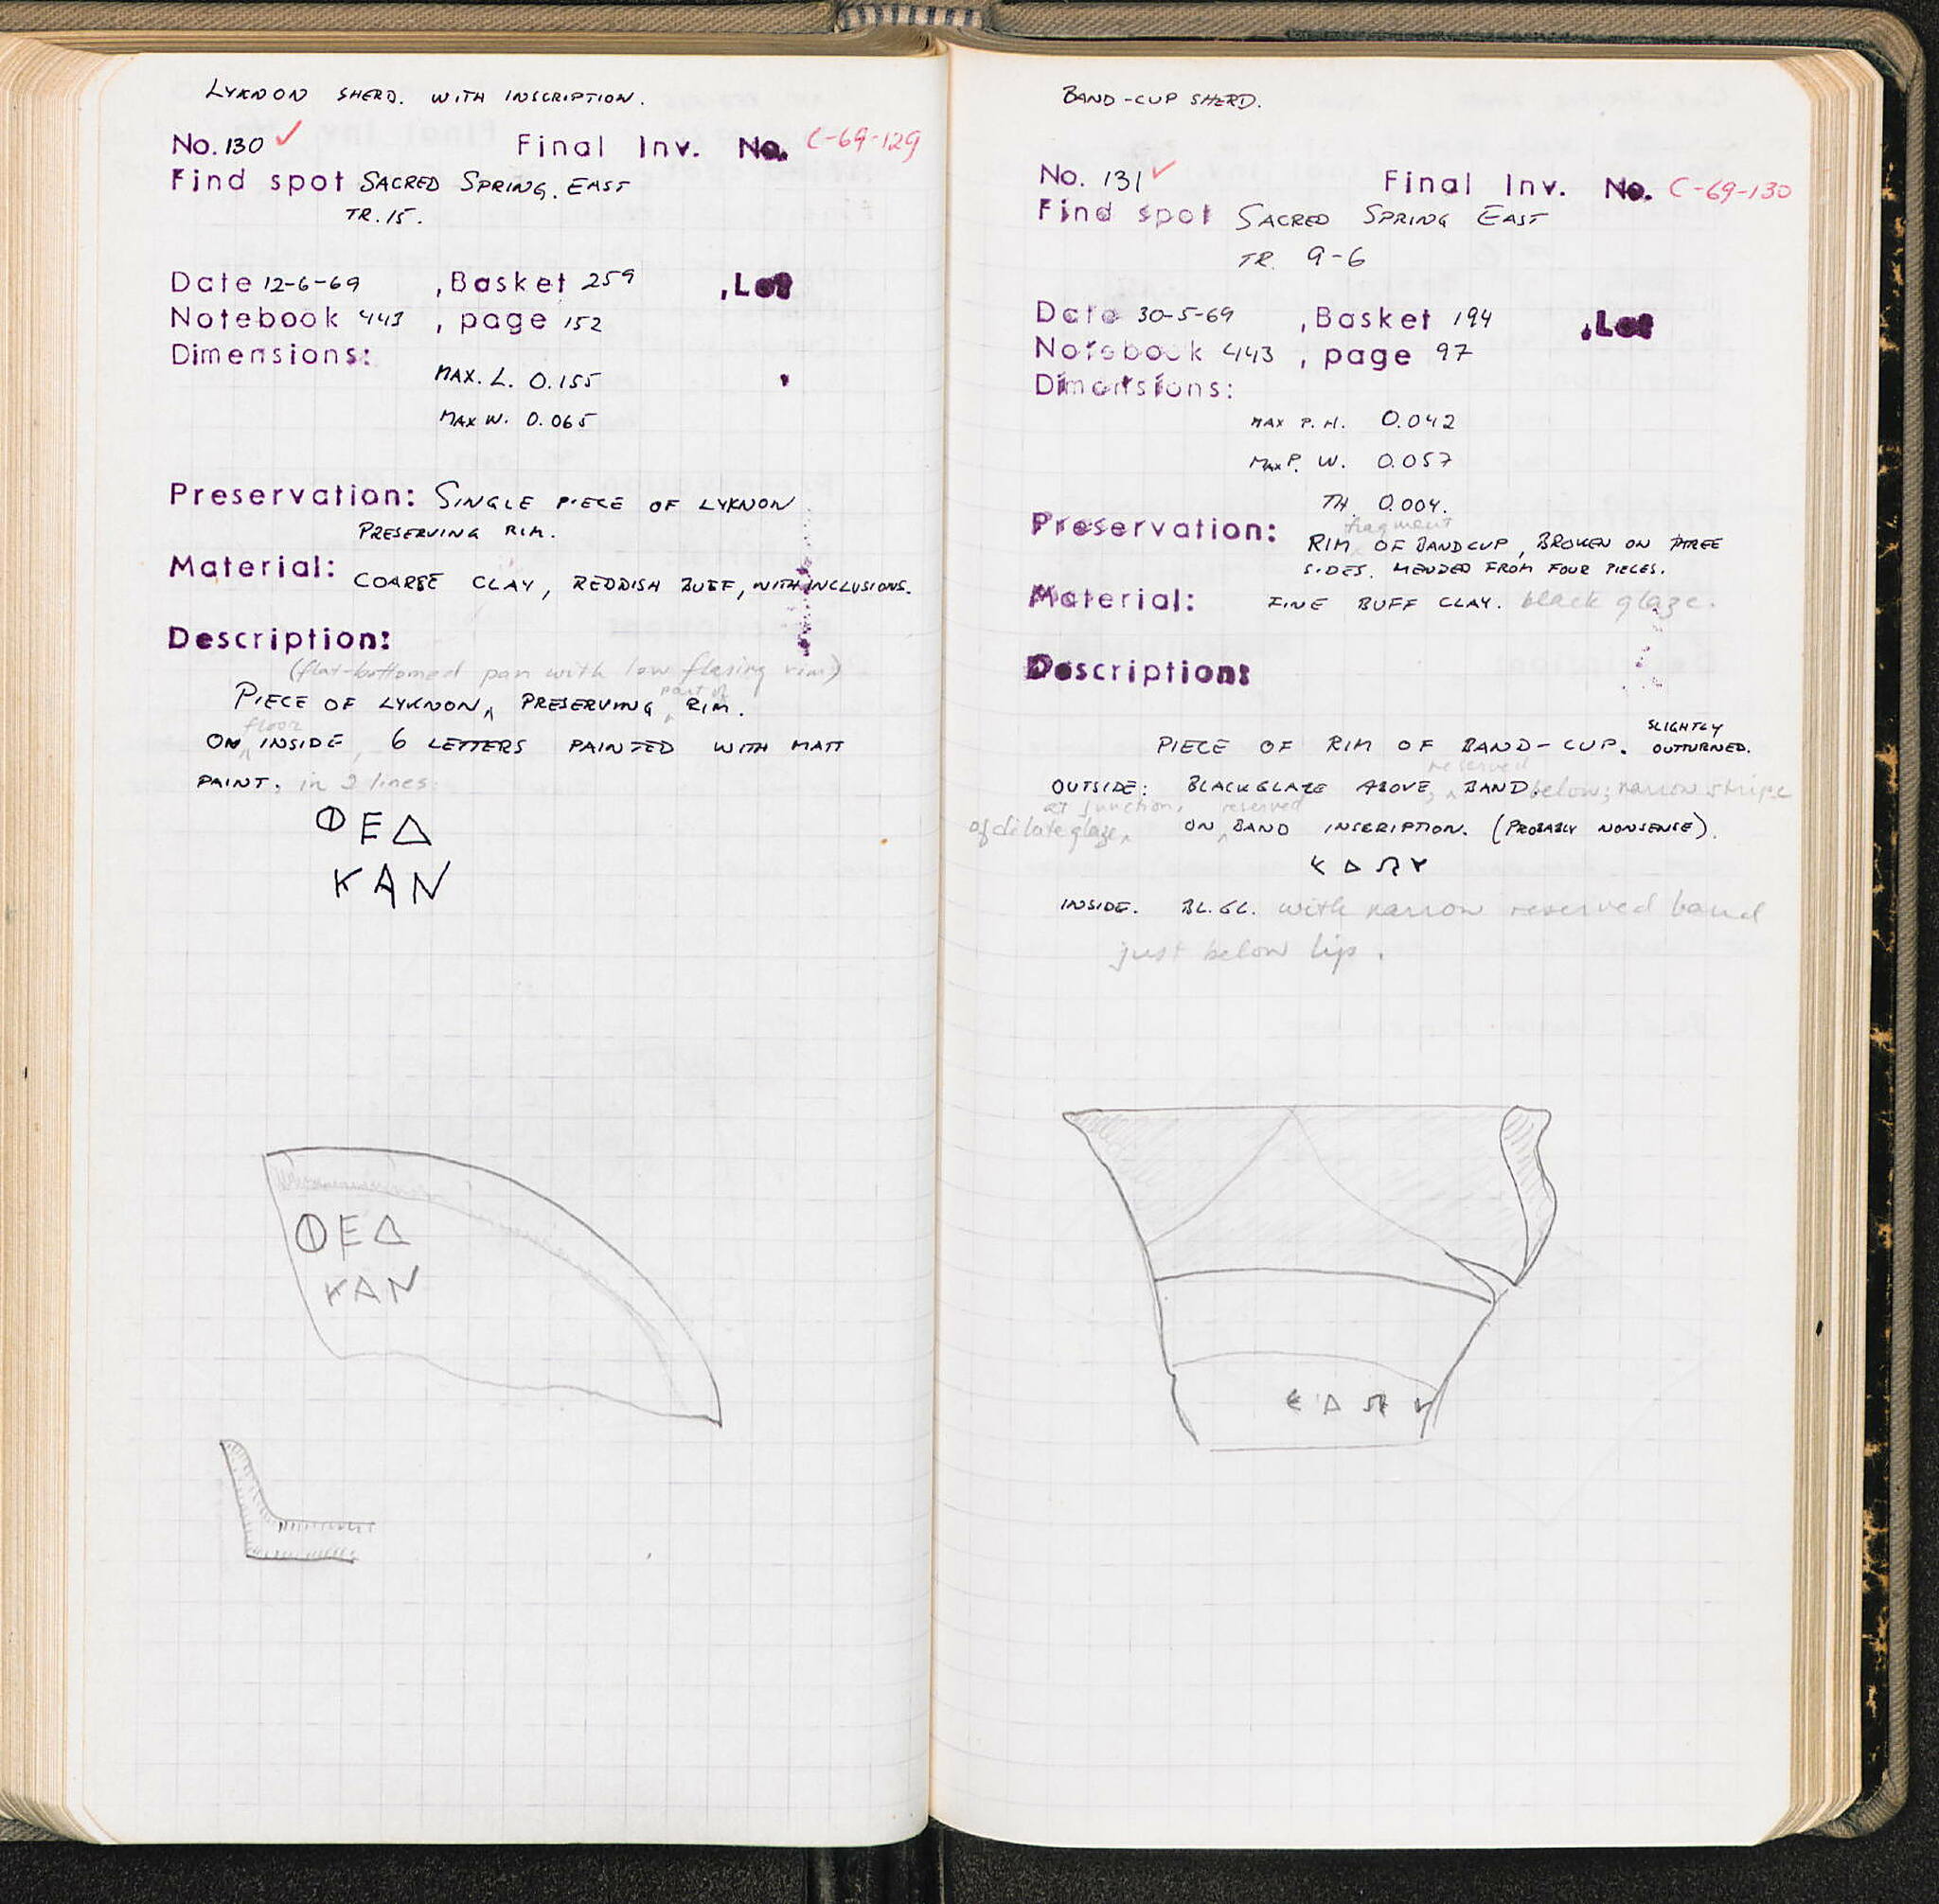 LYKNON SHERD. WITH INSCRIPTION.
No. 130 ✓ Final Inv. No. C-69-129
Find spot SACRED SPRING. EAST
TR. 15.
Date 12-6-69 , Basket 259 , Lot
Notebook 443 , page 152
Dimensions:
MAX. L. 0.155
MAX W. 0.065
Preservation: SINGLE PIECE OF LYKNON
PRESERVING RIM.
Material: COARSE CLAY, REDDISH BUFF, WITH INCLUSIONS.
Description:
(flat-bottomed pan with low flaring rim)
part of
PIECE OF LYKNON, PRESERVING RIM.
floor
ON INSIDE, 6 LETTERS PAINTED WITH MATT
PAINT. in 2 lines.
ΦΕΔ
ΚΑΝ
ΦΕΔ
ΚΑΝ
BAND-CUP SHERD.
No. 131 ✓ Final Inv. No. C-69-130
Find spot SACRED SPRING EAST
TR. 9-6
Date 30-5-69 , Basket 194 , Lot
Notebook 443 , page 97
Dimensions:
MAX P. H. 0.042
MAX P. W. 0.057
TH. 0.004.
fragment
Preservation: RIM OF BANDCUP, BROKEN ON THREE
SIDES. MENDED FROM FOUR PIECES.
Material: FINE BUFF CLAY. black glaze.
Description:
SLIGHTLY
PIECE OF RIM OF BAND-CUP. OUTTURNED.
reserved
OUTSIDE: BLACKGLAZE ABOVE, BAND. below; narrow stripe
at junction. reserved
of dilute glaze ON BAND INSCRIPTION. (PROBABLY NONSENSE).
INSIDE. BL. GL. with narrow reserved band
just below lip.